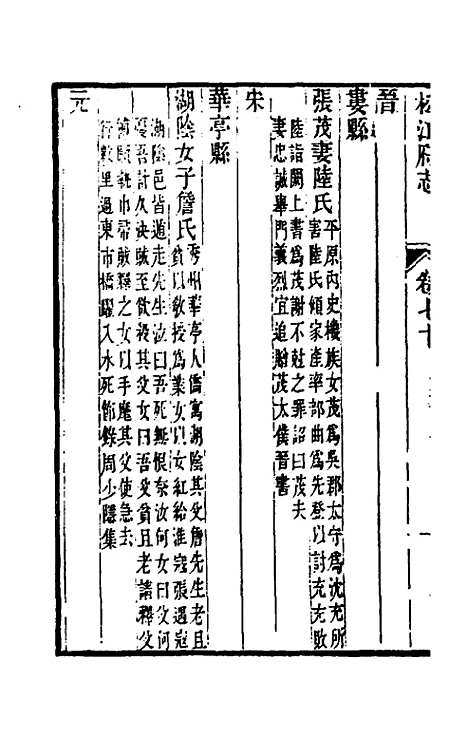 松江府志
卷七十
一
晉
婁縣
張茂妻陸氏
平原內史機族女茂為吳郡太守為沈充所
害陸氏傾家產率部曲為先登以討充充敗
陸詣闕上書為茂謝不尅之罪詔曰茂夫
妻忠誠舉門義烈宜追贈茂太僕晉書
宋
華亭縣
湖陰女子詹氏
秀州華亭人僑寓湖陰其父詹先生老且
貧以敎授為業女以女紅給淮寇張遇寇
湖陰邑皆遁走先生泣曰吾死無恨奈汝何女曰父何
憂吾計久決賊至欲殺其父女曰吾父貧且老請釋父
賊釋之女以手麾其父使急去
行數里過東市橋躍入水死節錄周少隱集
元